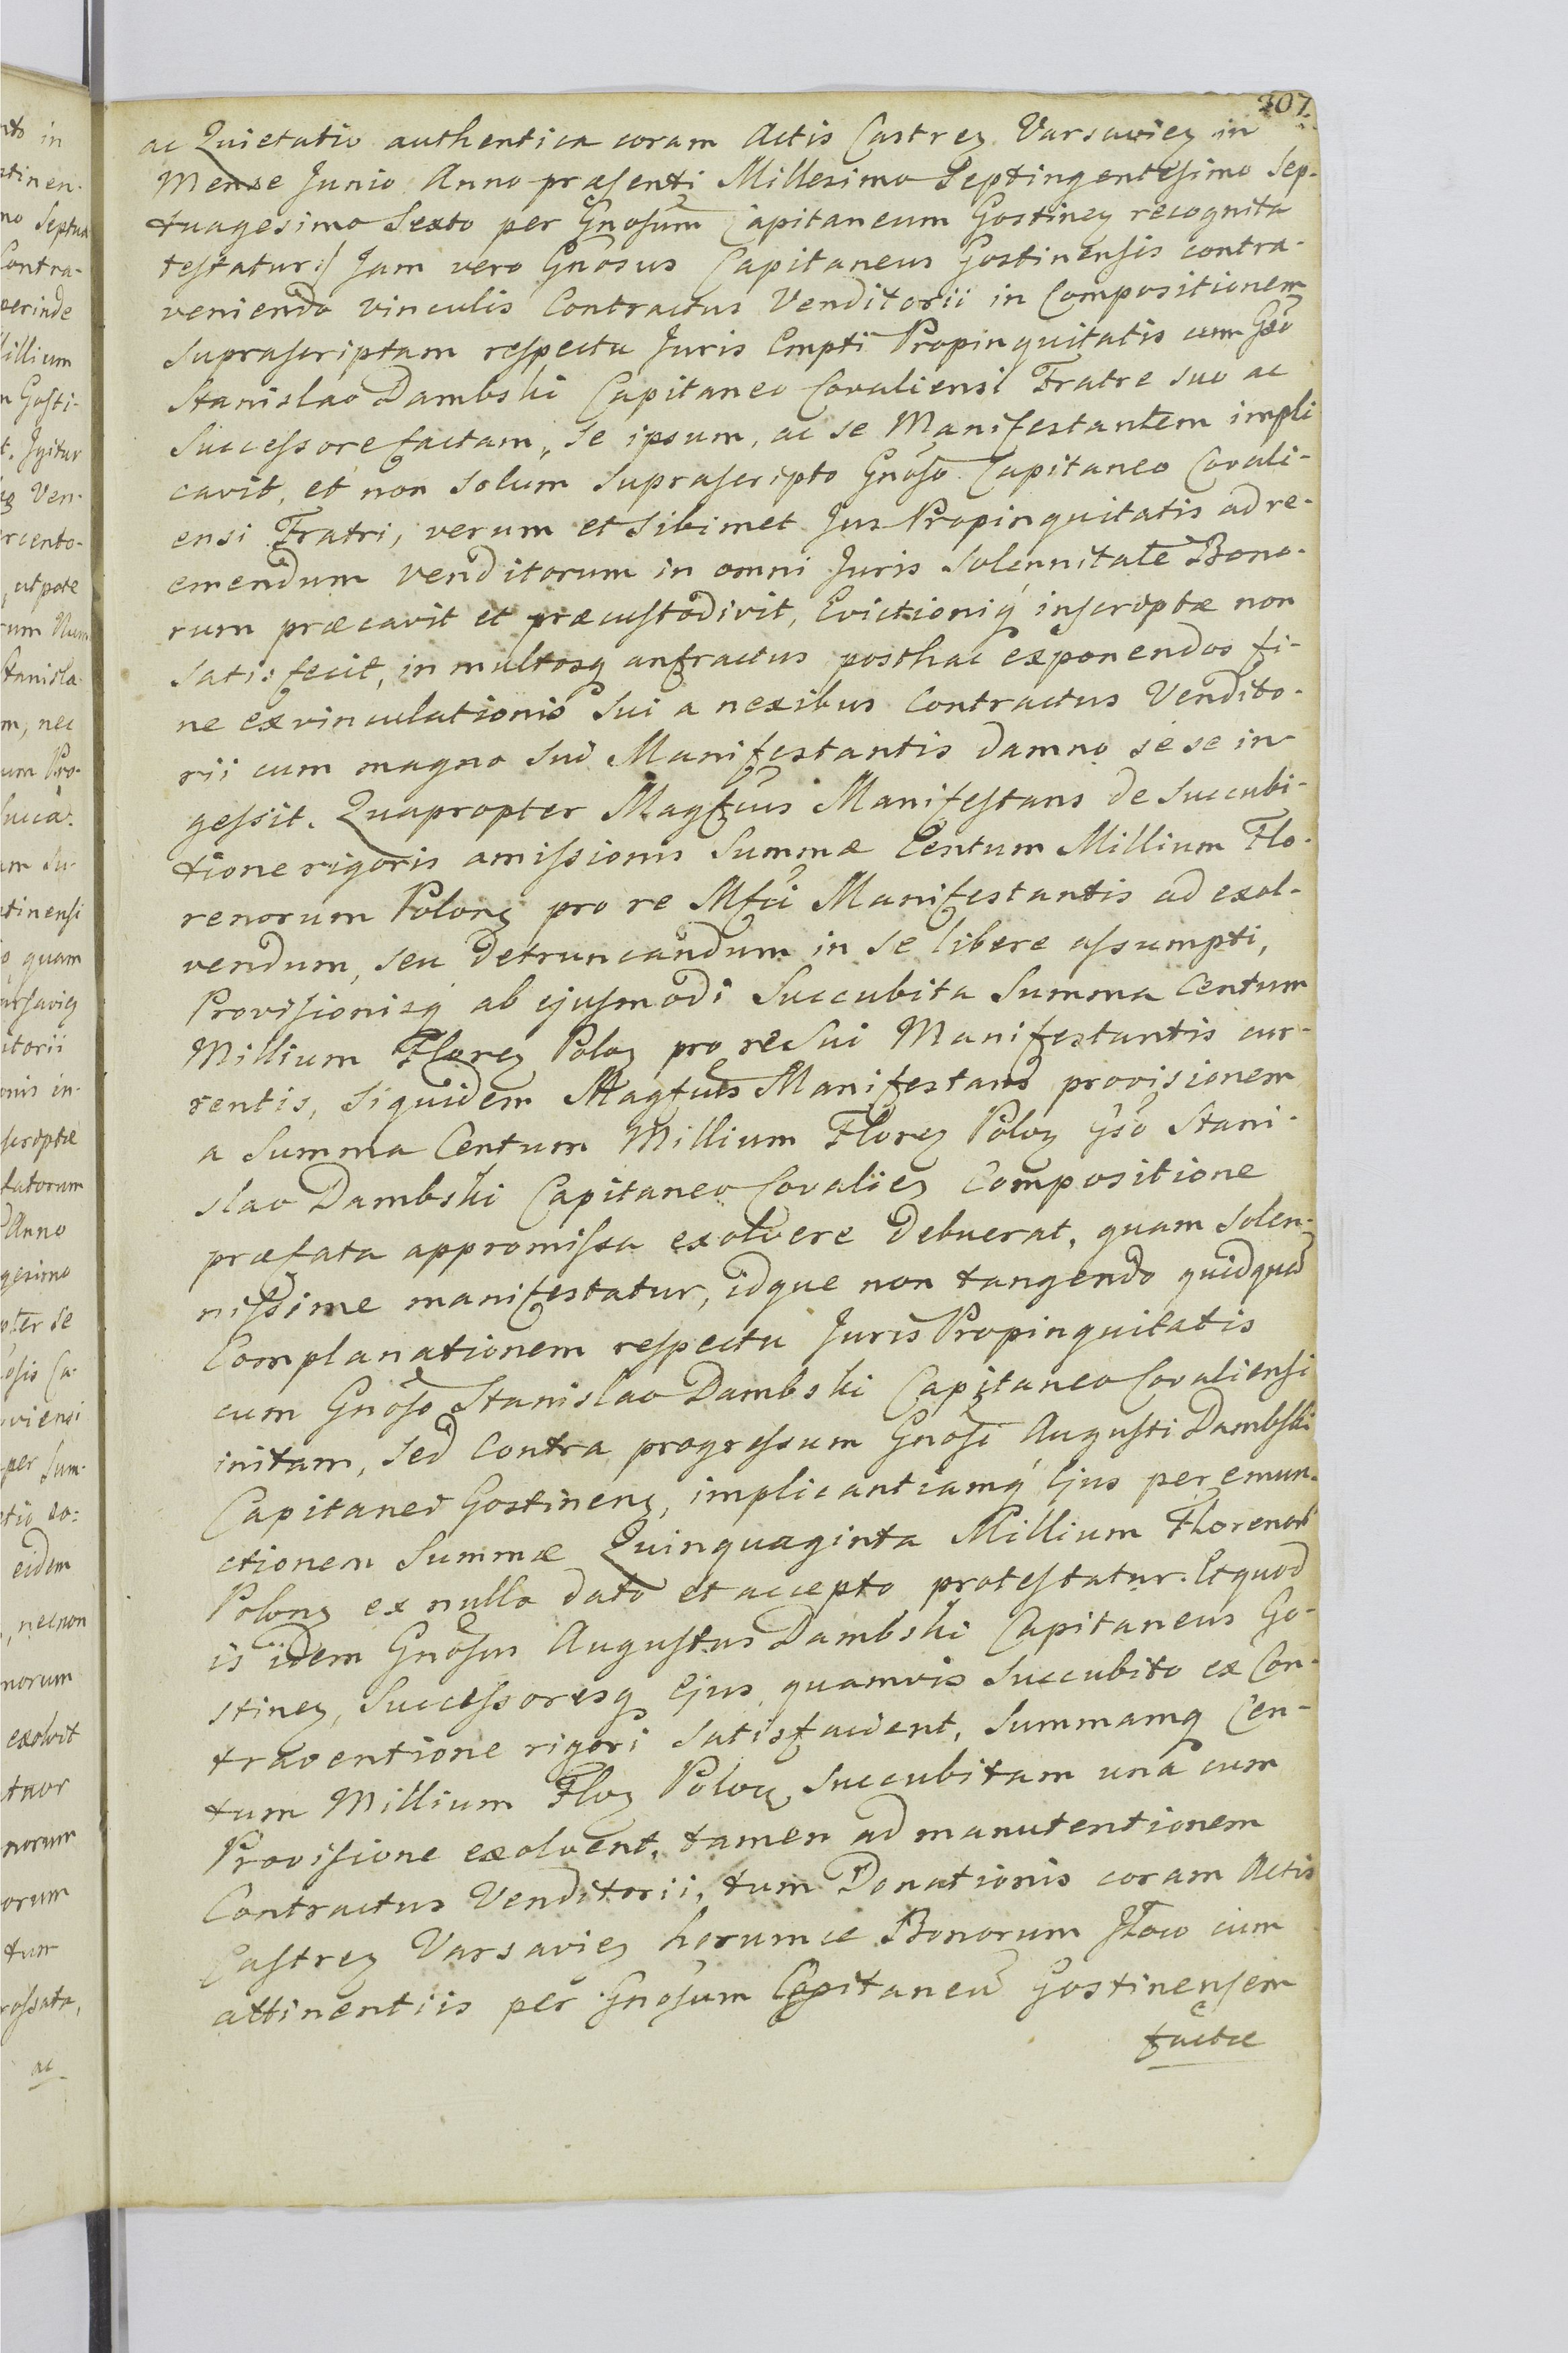 207.
ac Quietatio authentica coram Actis Castreꝫ Varsavieꝫ in
Mense Junio Anno præsenti Millesimo Septingentesimo Sep-
tuagesimo Sexto per Gnosum Capitaneum Gostineꝫ recognita
testatur:/ Jam vero Gnosus Capitaneus Gostinensis contra-
veniendo vinculis Contractus Venditorii in Compositionem
suprascriptam respectu Juris Empti Propinquitatis cum Gso
Stanislao Dambski Capitaneo Covaliensi Fratre suo ac
Successore factam, se ipsum, ac se Manifestantem impli
cavit, et non solum suprascripto Gnoso Capitaneo Covali-
ensi Fratri, verum et sibimet Jus Propinquitatis ad re-
emendum venditorum in omni Juris solennitate Bono-
rum præcavit et præcustodivit, Evictioniq inscriptæ non
satisfecit, in multosq anfractus posthac exponendos fi-
ne exvinculationis sui a nexibus Contractus Vendito-
rii cum magno sui Manifestantis damno sese in-
gessit. Quapropter Magfcus Manifestans de succubi-
tione rigoris amissionis Summæ Centum Millium Flo-
renorum Polonꝫ pro re Mfci Manifestantis ad exol-
vendum, seu detruncandum in se libere assumpti,
Provisionisq ab ejusmodi Succubita Summa Centum
Millium Floreꝫ Poloꝫ pro re sui Manifestantis cur-
rentis, siquidem Magfcus Manifestans provisionem
a Summa Centum Millium Floreꝫ Poloꝫ Gso Stani-
slao Dambski Capitaneo Covalieꝫ Compositione
præfata appromissa exolvere debuerat, quam solen-
nissime manifestatur, idque non tangendo quidquam
Complanationem respectu Juris Propinquitatis
cum Gnoso Stanislao Dambski Capitaneo Covaliensi
initam, sed contra progressum Gnosi Augusti Dambski
Capitanei Gostinenꝫ, implicantiamq Ejus per emun-
ctionem Summæ Quinquaginta Millium Florenor
Polonꝫ ex nullo dato et accepto protestatur. Et quod
is idem Gnosus Augustus Dambski Capitaneus Go-
stineꝫ, Successoresq Ejus, quamvis succubito ex Con-
traventione rigori satisfacient, Summamq Cen-
tum Millium Floꝫ Poloꝫ succubitam una cum
Provisione exolvent, tamen ad manutentionem
Contractus Venditorii, tum Donationis coram Actis
Castreꝫ Varsavieꝫ horumce Bonorum Iłow cum
attinentiis per Gnosum Capitaneu Gostinensem
factæ